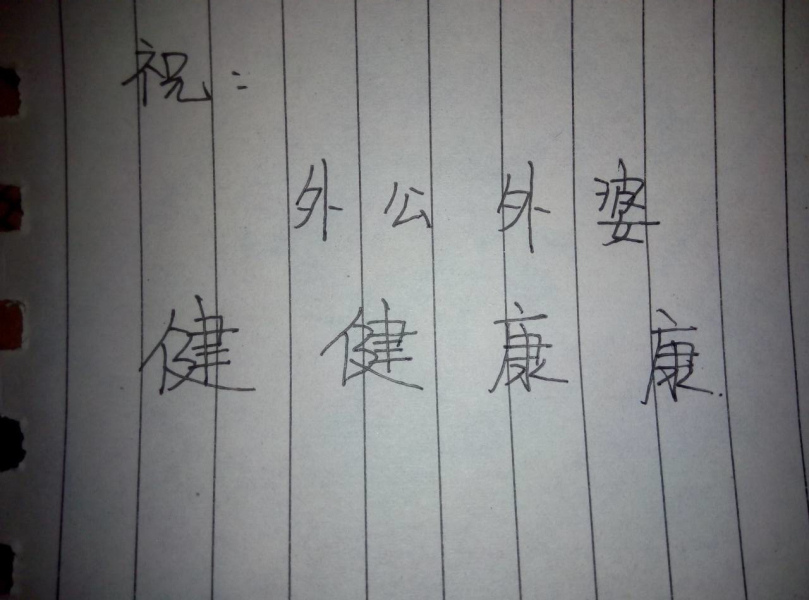 祝：
外公外婆
健健康康